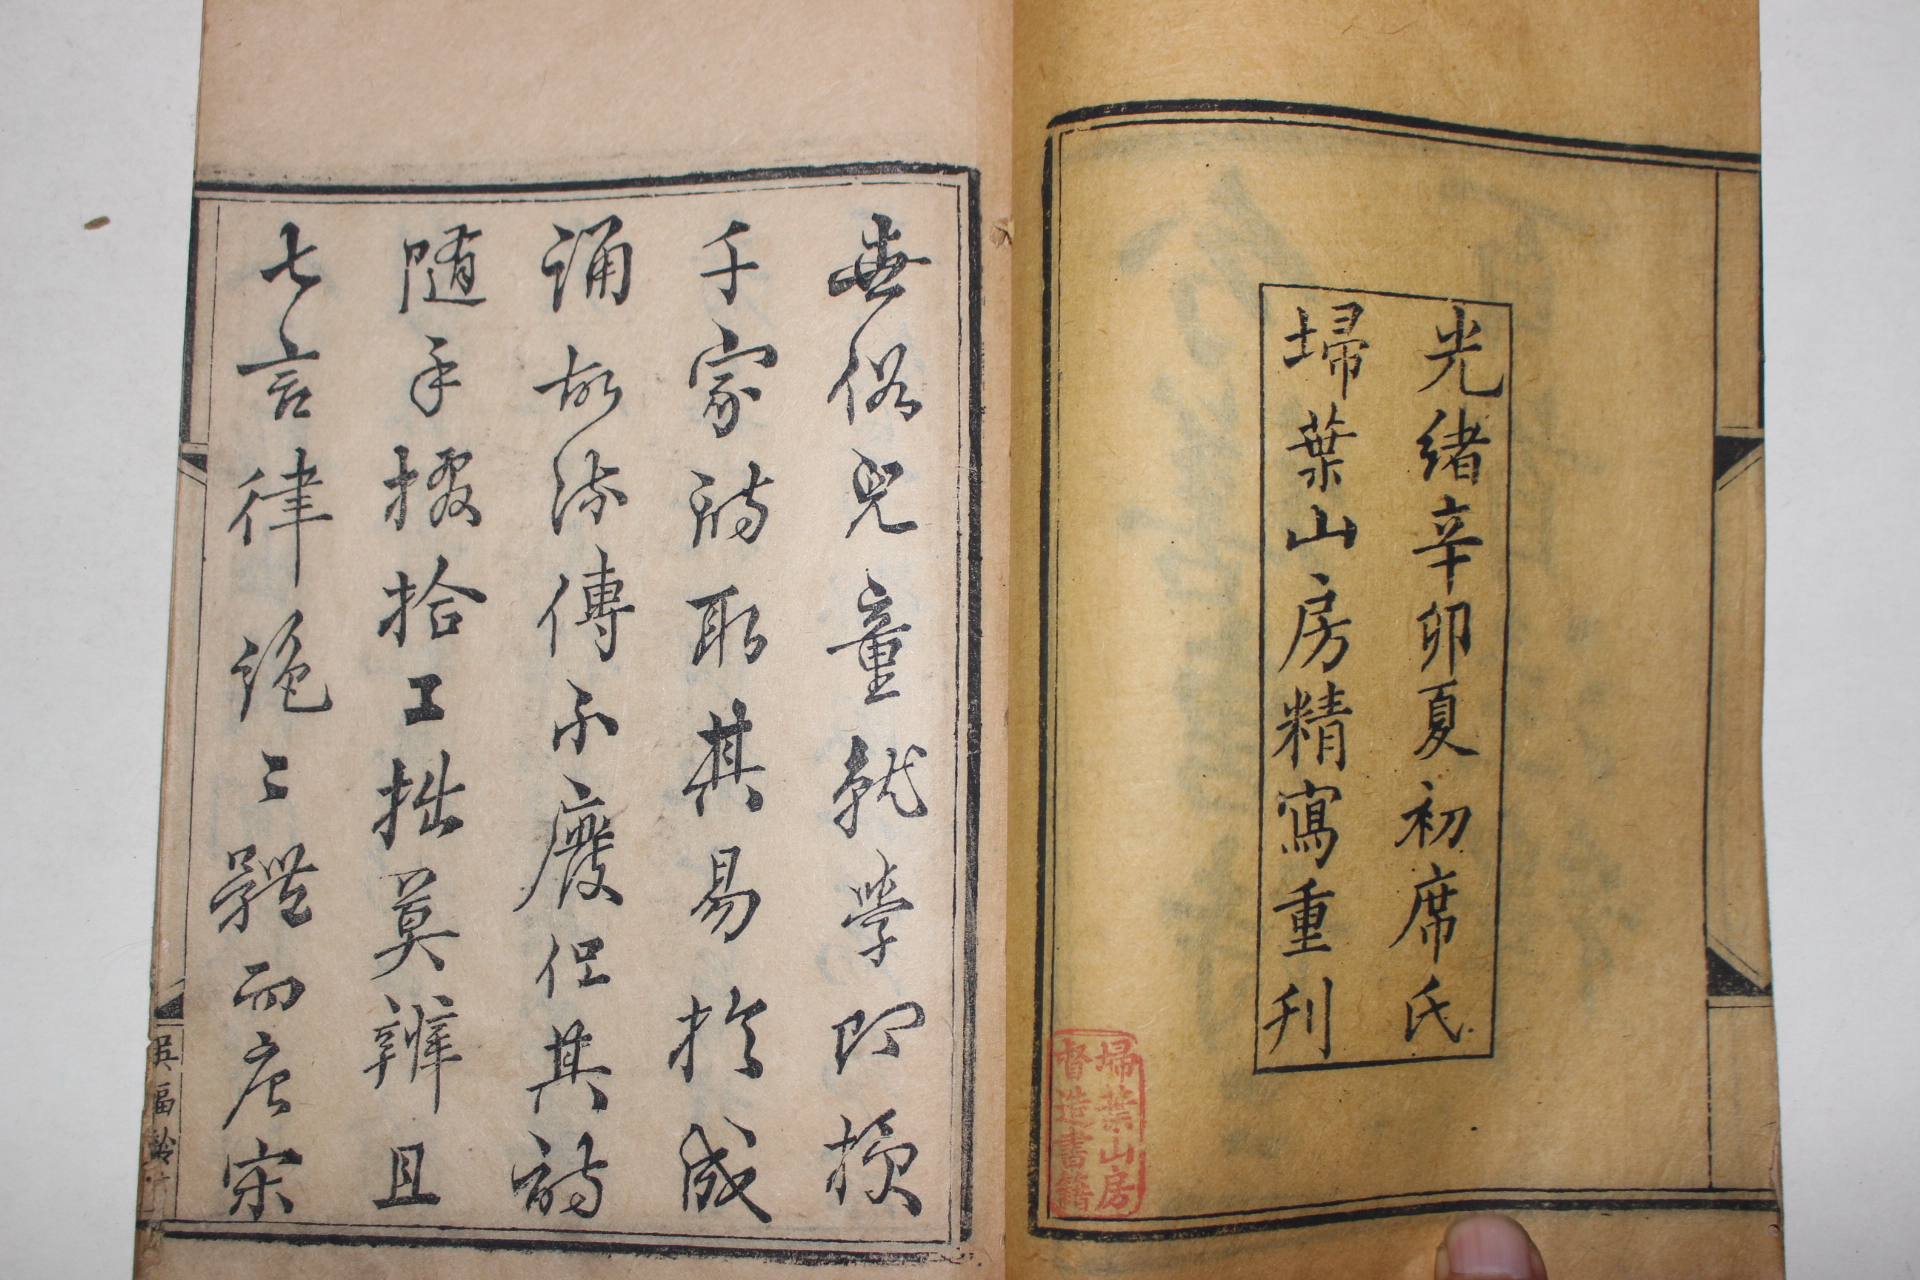 光緒辛卯夏初席氏
埽葉山房精寫重刋
埽葉山房
督造書籍
世俗兒童就學即授
千家詩取其易於成
誦故流傳不廢但其詩
隨手掇拾工拙莫辨且
七言律絶二體而唐宋
吳福齡